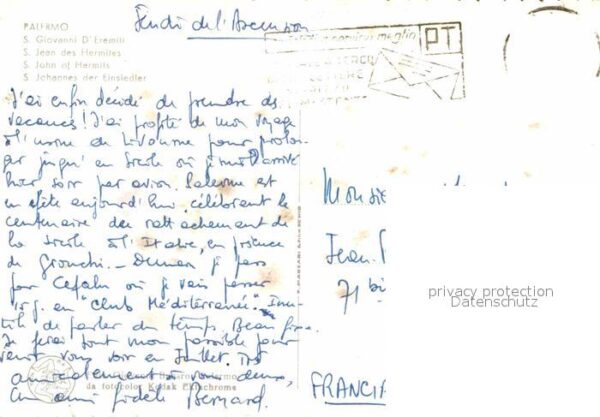 Jeudi de l'Ascension
PALERMO
S. Giovanni D'Eremiti
S. Jean des Hermites
S. John of Hermits
S. Johannes der Einsiedler
PT
J'ai enfin décidé de prendre des
vacances! J'ai profité de mon voyage
à l'usine de Livourne pour prolon-
ger jusqu'en Sicile où je suis arrivé
hier soir par avion. Palerme est
en fête aujourd'hui, célébrant le
centenaire du rattachement de
la Sicile à l'Italie, en présence
de Gronchi. - Demain je pars
pour Cefalu où je vais passer
15 j. en "Club Méditerranée". Inu-
tile de parler du temps. Beau fixe.
Je ferai tout mon possible pour
venir vous voir en Juillet. Très
amicalement à vous deux,
Un ami fidèle Bernard.
da fotocolor Kodak Ektachrome
Monsie
Jean.
71 bis
privacy protection
Datenschutz
FRANCIA